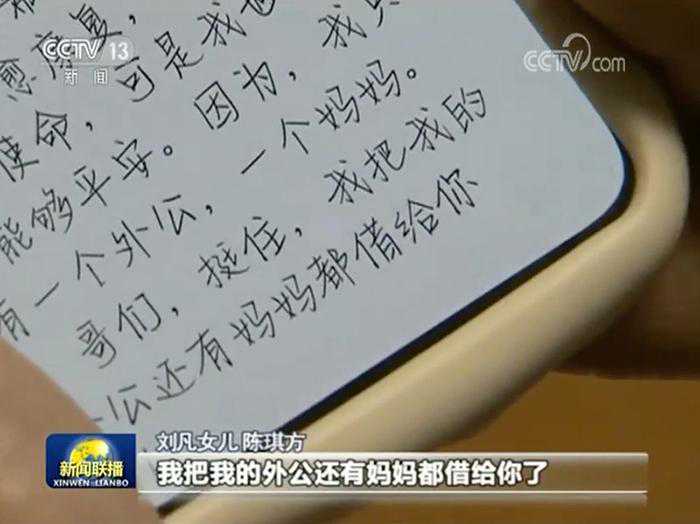 CCTV 13
新闻
CCTV com
愈康复,
使命,可是我也
能够平安。因为,我只
有一个外公,一个妈妈。
哥们,挺住,我把我的
公还有妈妈都借给你
刘凡女儿 陈琪方
新闻联播
XINWEN LIANBO
我把我的外公还有妈妈都借给你了